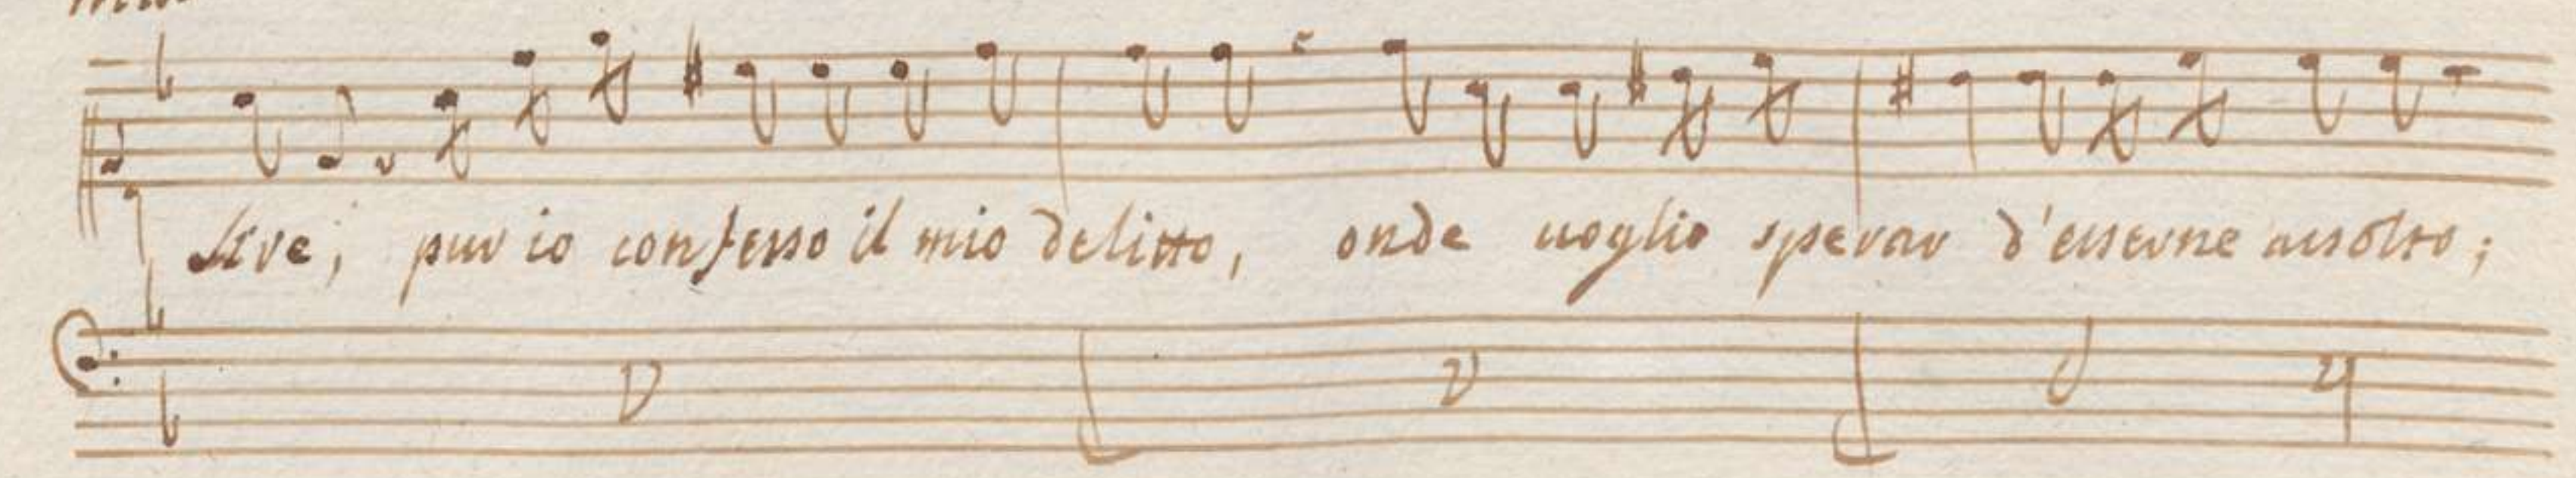 stre; pur io confesso il mio delitto, onde uoglio sperar d'esserne assolto;